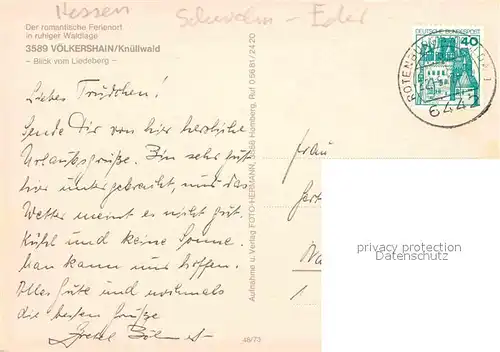 Hessen
Schwalm - Eder
Der romantische Ferienort
in ruhiger Waldlage
3589 VÖLKERSHAIN/Knüllwald
– Blick vom Liedeberg –
DEUTSCHE BUNDESPOST
40
ROTENBURG
6442
Liebes Trudchen!
Sende Dir von hier herzliche
Urlaubsgrüße. Bin sehr gut
hier untergebracht, nur das
Wetter meint es nicht gut.
Kühl und keine Sonne.
Man kann nur hoffen.
Alles Gute und nochmals
die besten Grüße
Gretel
Aufnahme u. Verlag FOTO-HERMANN, 3588 Homberg, Ruf 05681/2420
48/73
Frau
privacy protection
Datenschutz